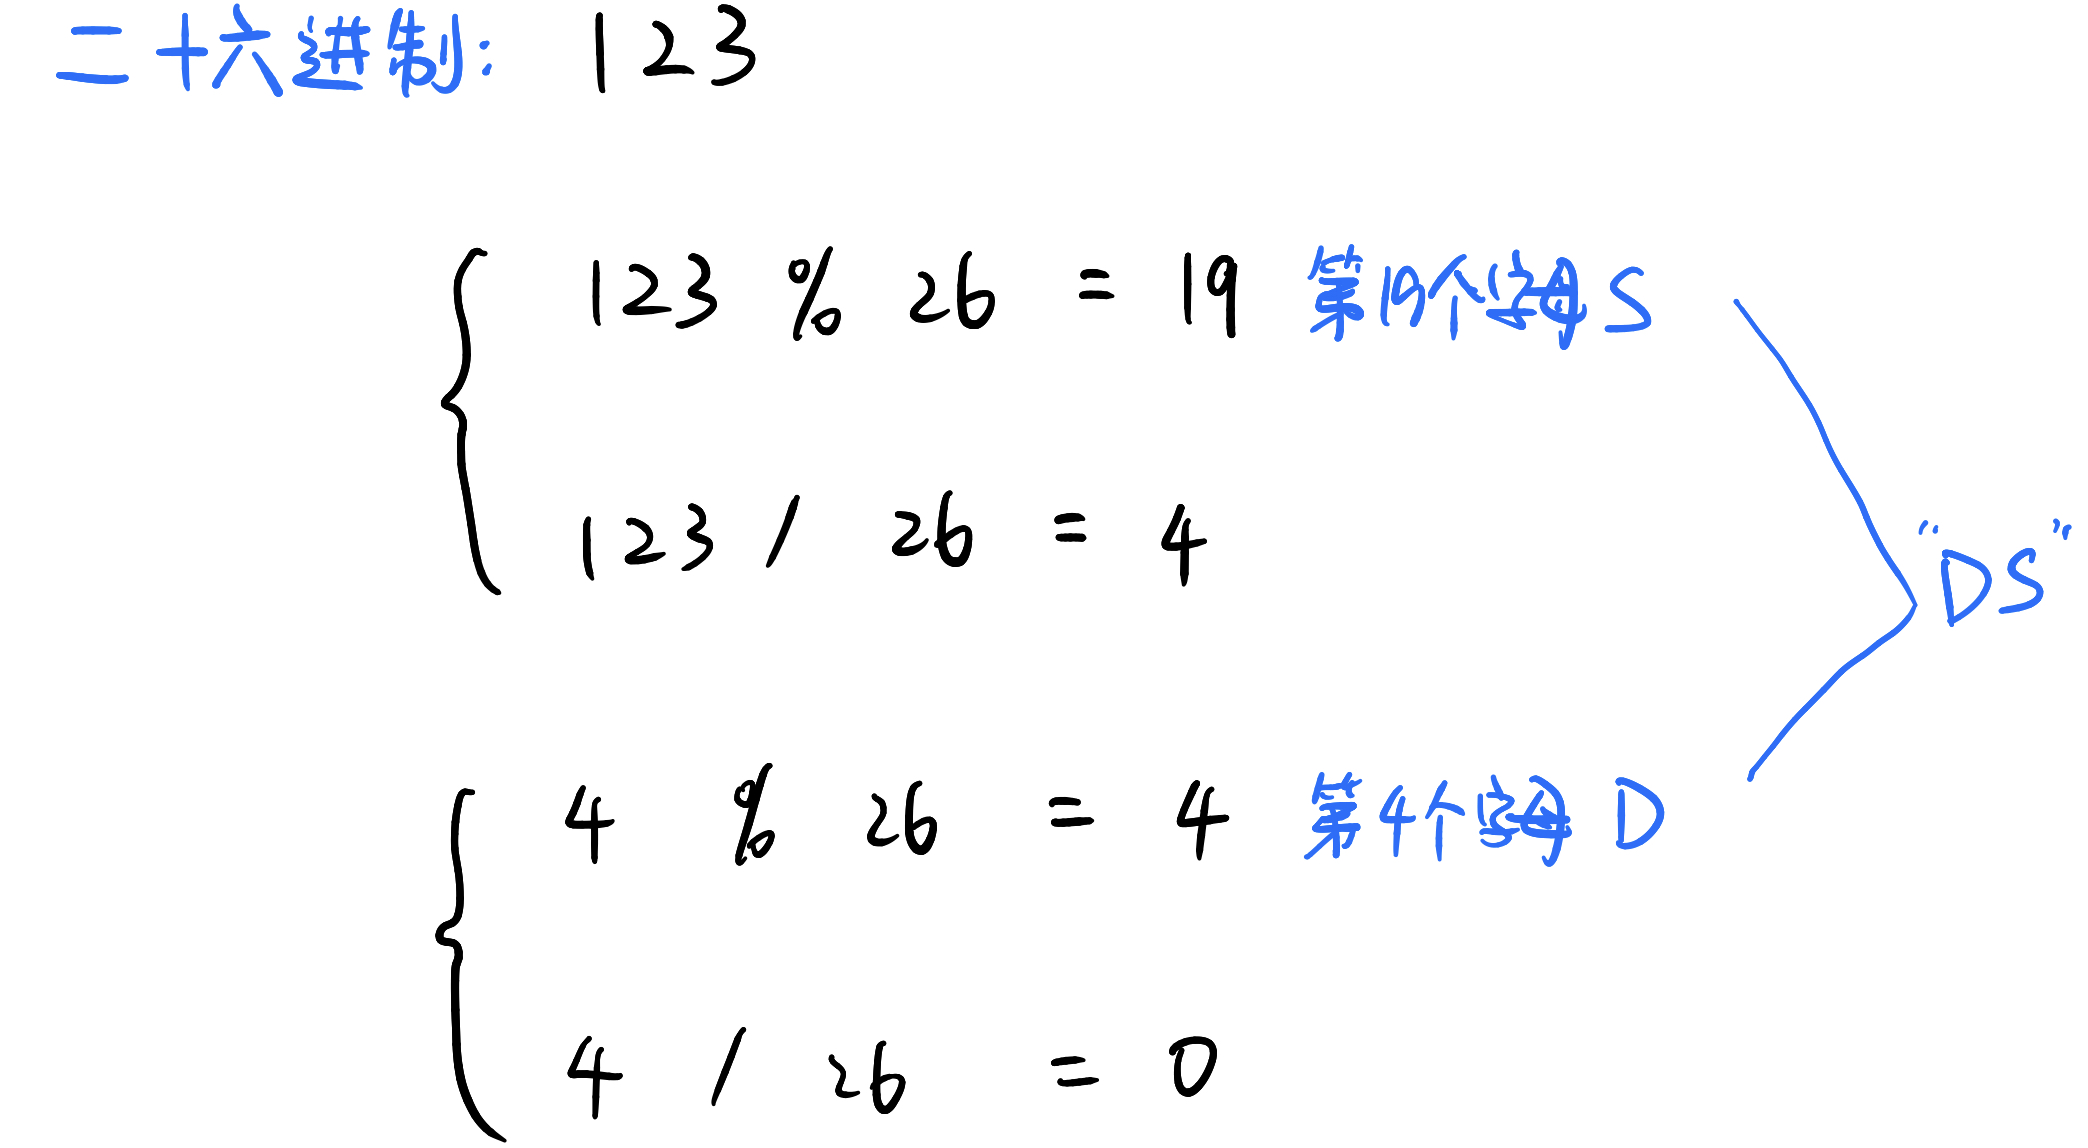 二十六进制: 123
123 % 26 = 19 第19个字母 S
123 / 26 = 4
"DS"
4 % 26 = 4 第4个字母 D
4 / 26 = 0